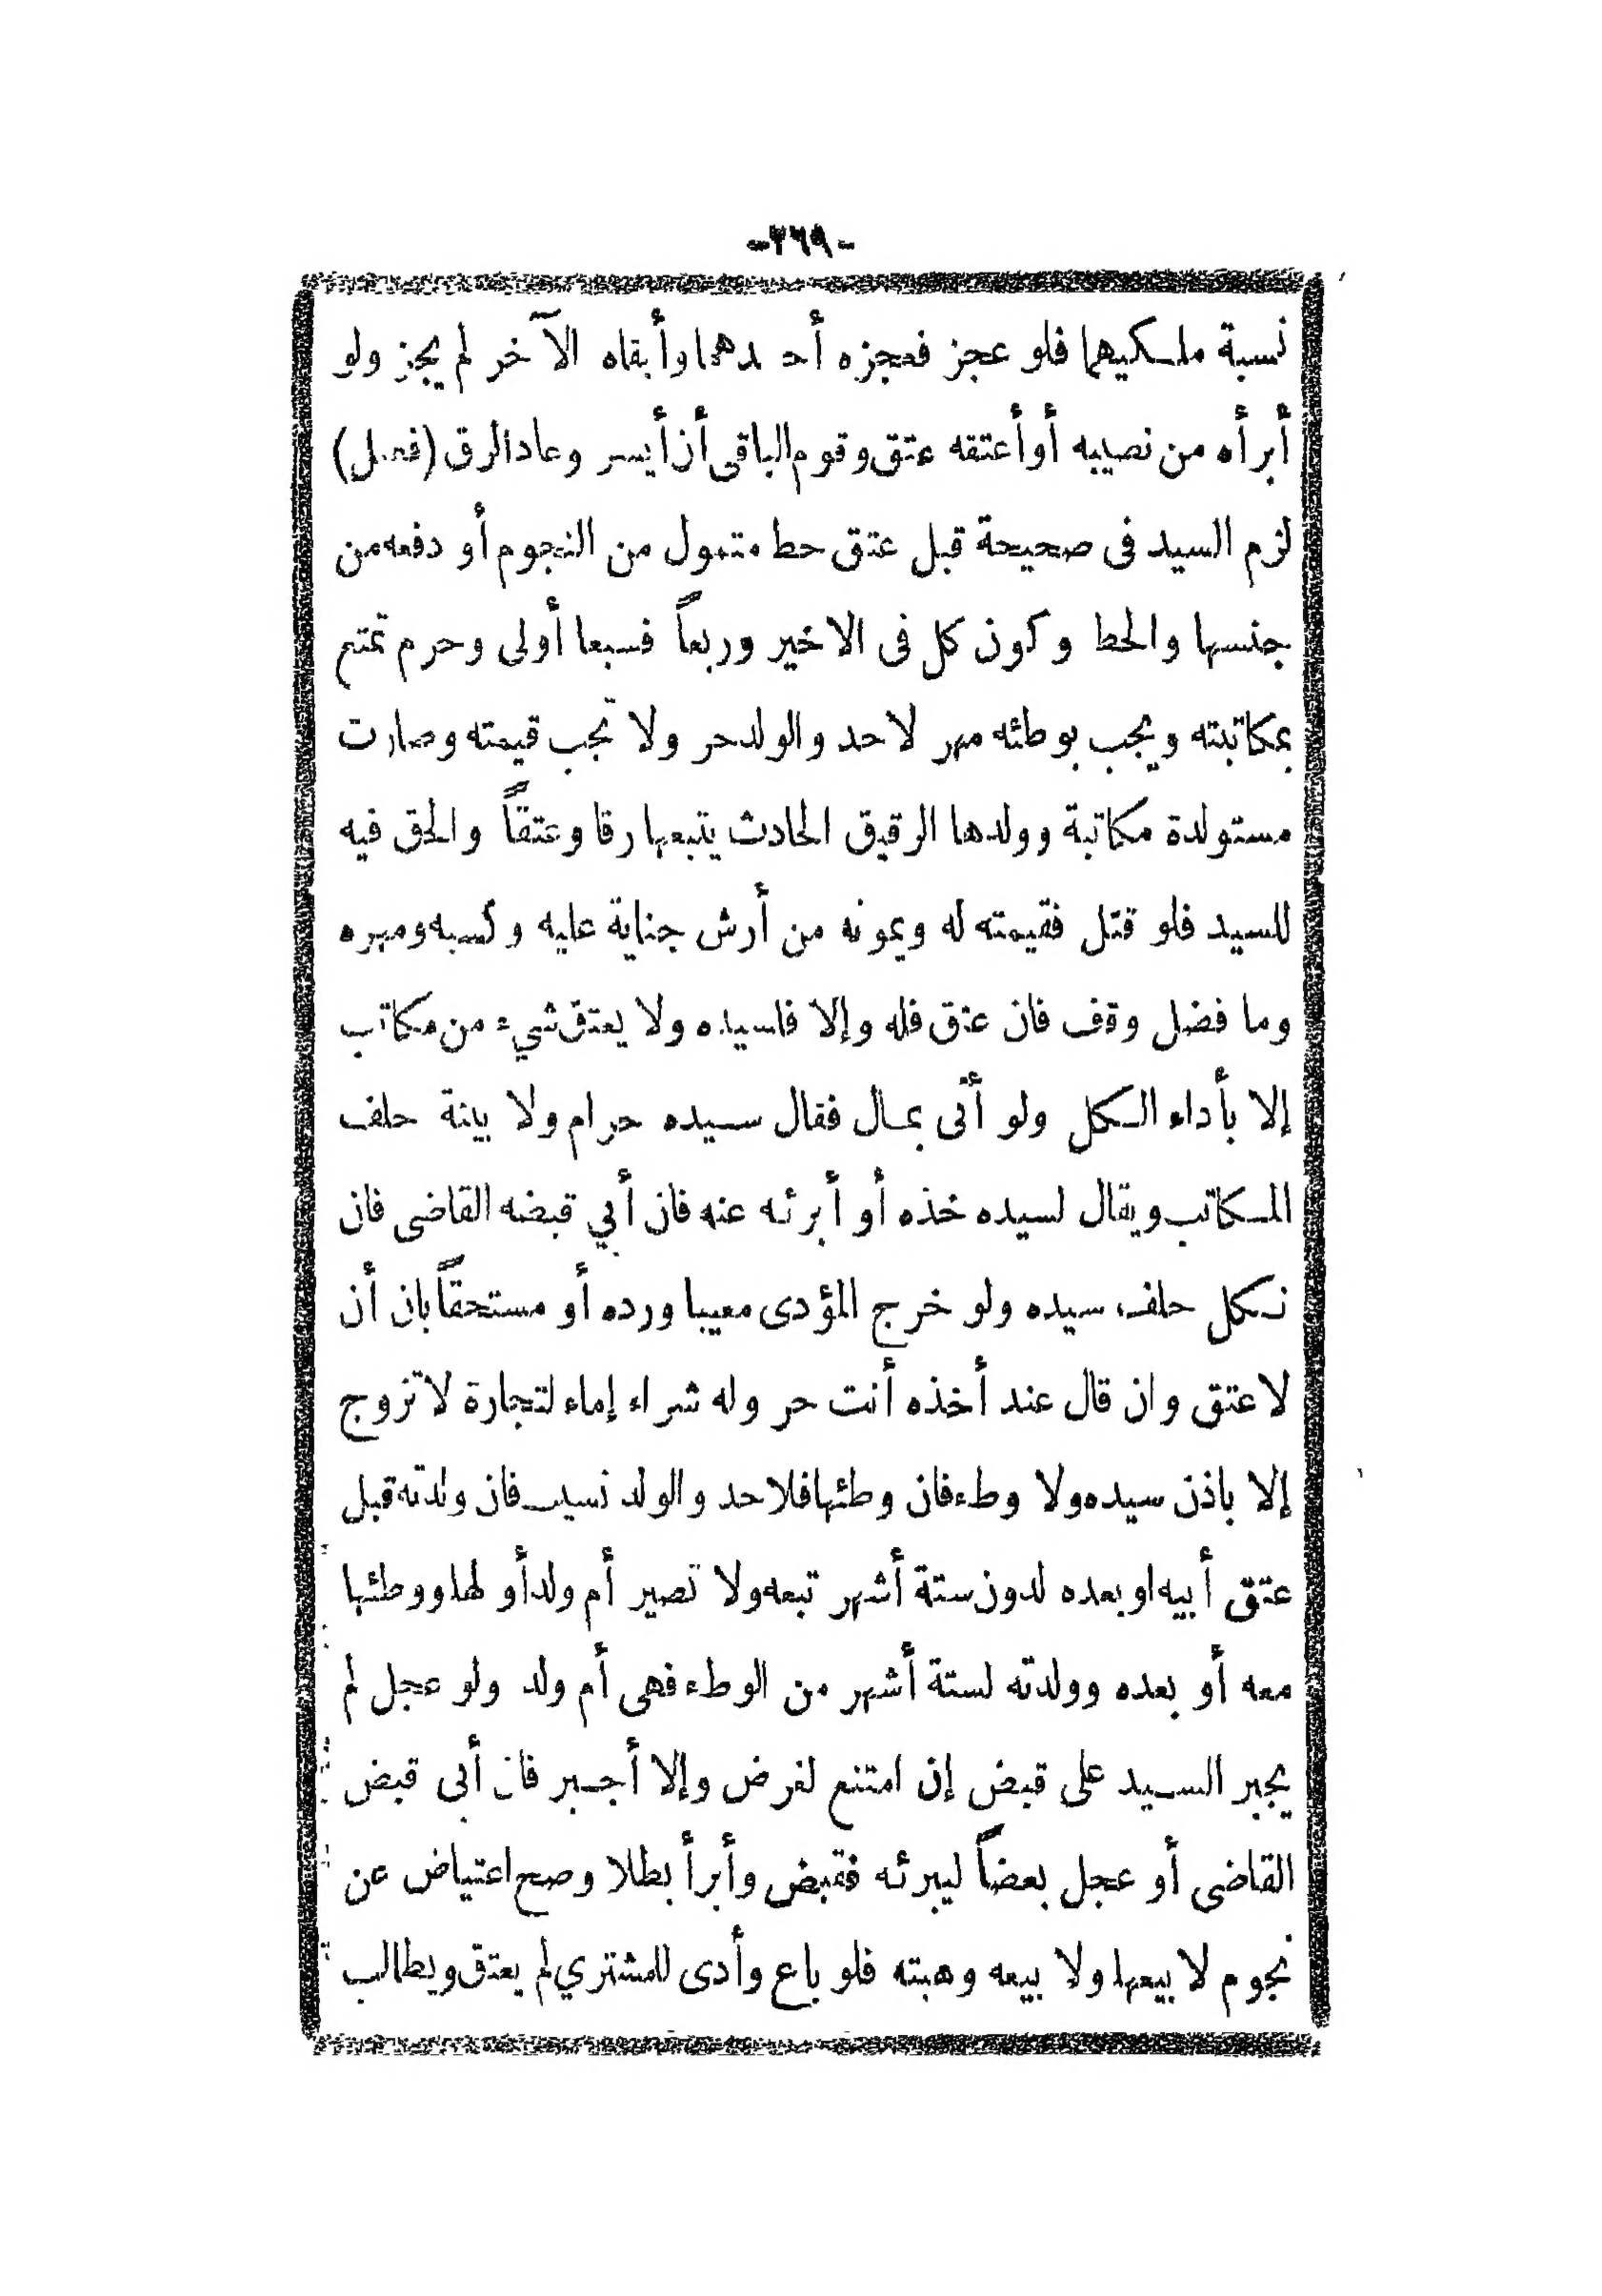 -٣٦٩-
نسبة ملكيهما فلو عجز فعجزه أحدهما وأبقاه الآخر لم يجز ولو
أبرأه من نصيبه أو أعتقه عتق وقوم الباقى أن أيسر وعاد الرق (فصل)
لزم السيد فى صحيحة قبل عتق حط متمول من النجوم أو دفعه من
جنسها والحط وكون كل فى الاخير وربعاً فسبعا أولى وحرم تمتع
بمكاتبته ويجب بوطئه مهر لا حد والولد حر ولا تجب قيمته وصارت
مستولدة مكاتبة وولدها الرقيق الحادث يتبعها رقا وعتقاً والحق فيه
للسيد فلو قتل فقيمته له ويمونه من أرش جناية عليه وكسبه ومهره
وما فضل وقف فان عتق فله وإلا فلسيده ولا يعتق شيء من مكاتب
إلا بأداء الكل ولو أتى بمال فقال سيده حرام ولا بينة حلف
المكاتب ويقال لسيده خذه أو أبرئه عنه فان أبي قبضه القاضى فان
نكل حلف سيده ولو خرج المؤدى معيبا ورده أو مستحقاً بان أن
لا عتق وان قال عند أخذه أنت حر وله شراء إماء لتجارة لا تزوج
إلا باذن سيده ولا وطء فان وطئها فلا حد والولد نسيب فان ولدته قبل
عتق أبيه او بعده لدون ستة أشهر تبعه ولا تصير أم ولد أو لها ووطئها
معه أو بعده وولدته لستة أشهر من الوطء فهى أم ولد ولو عجل لم
يجبر السيد على قبض إن امتنع لغرض وإلا أجبر فان أبى قبض
القاضى أو عجل بعضاً ليبرئه فقبض وأبرأ بطلا وصح اعتياض عن
نجوم لا بيعها ولا بيعه وهبته فلو باع وأدى للمشتري لم يعتق ويطالب